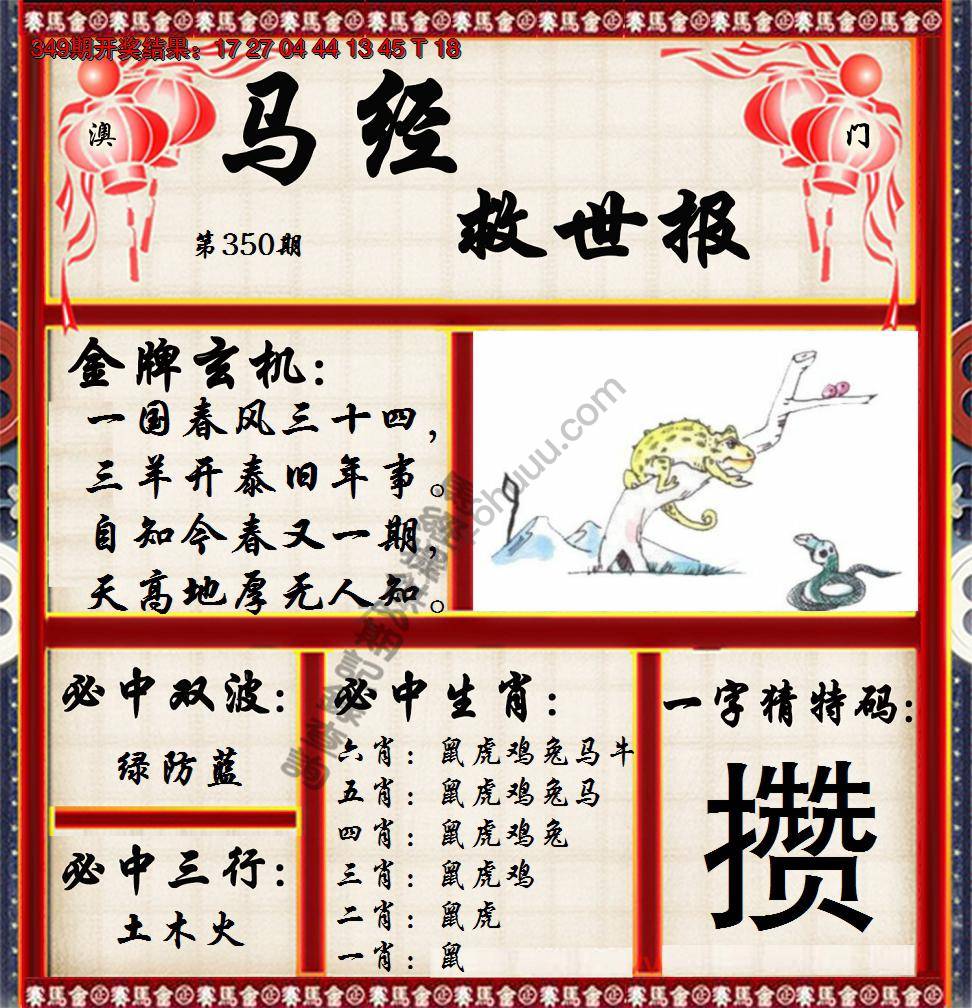 349期开奖结果：17 27 04 44 13 45 T 18
澳门
马经
救世报
第350期
金牌玄机：
一国春风三十四，
三羊开泰旧年事。
自知今春又一期，
天高地厚无人知。
必中双波：
绿防蓝
必中三行：
土木火
必中生肖：
六肖：鼠虎鸡兔马牛
五肖：鼠虎鸡兔马
四肖：鼠虎鸡兔
三肖：鼠虎鸡
二肖：鼠虎
一肖：鼠
一字猜特码：
攒